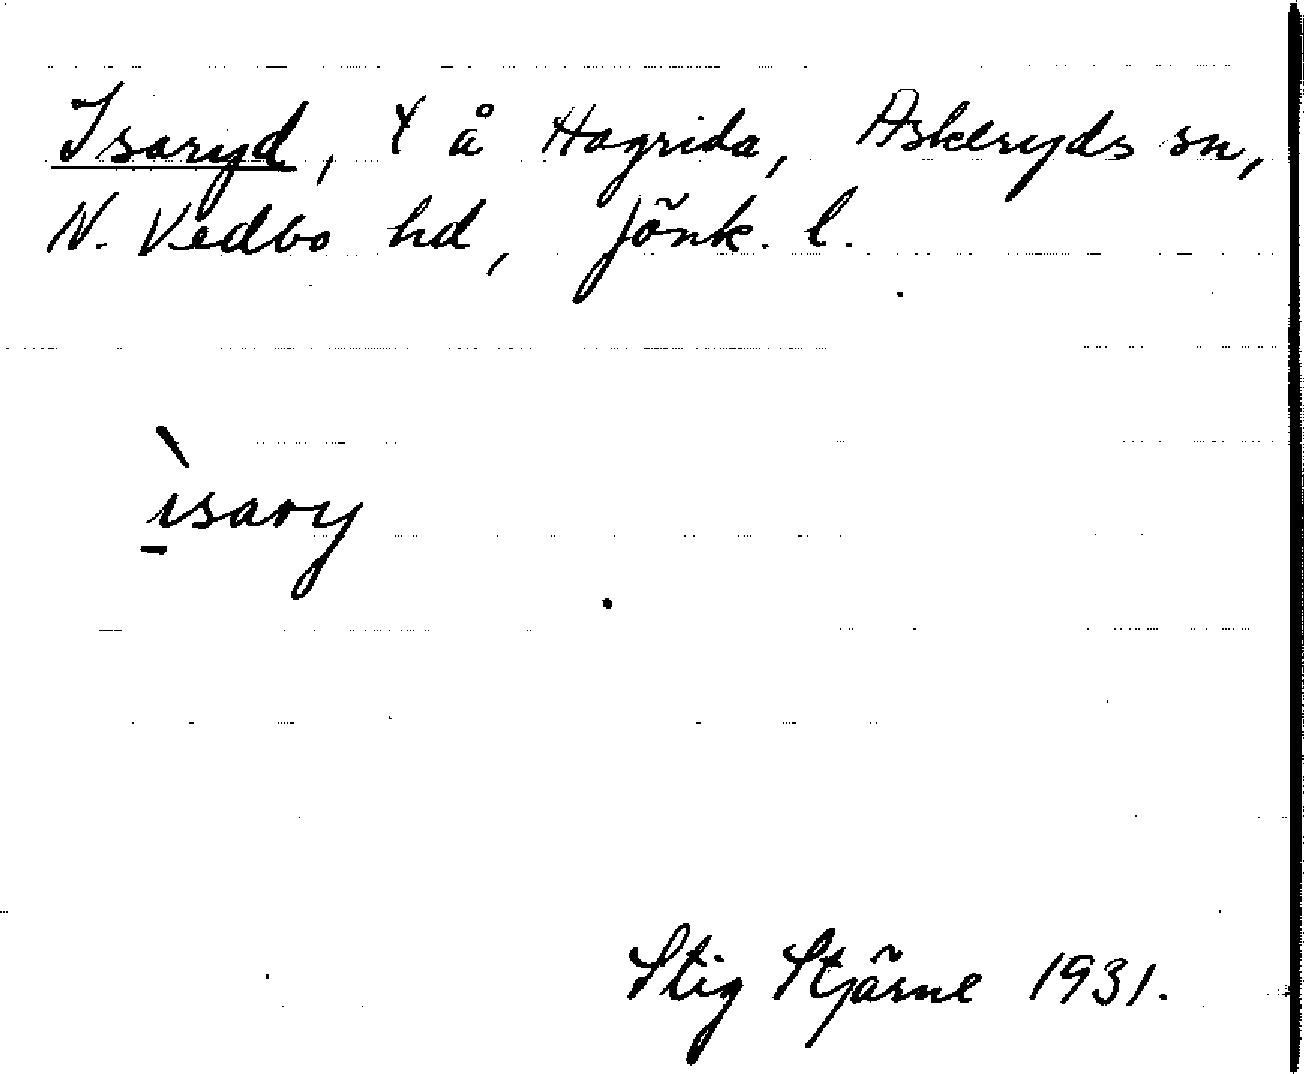 Isaryd, t å Hagrida, Askeryds sn,
N. Vedbo hd, Jönk. l.
ìsary
Stig Stjärne 1931.